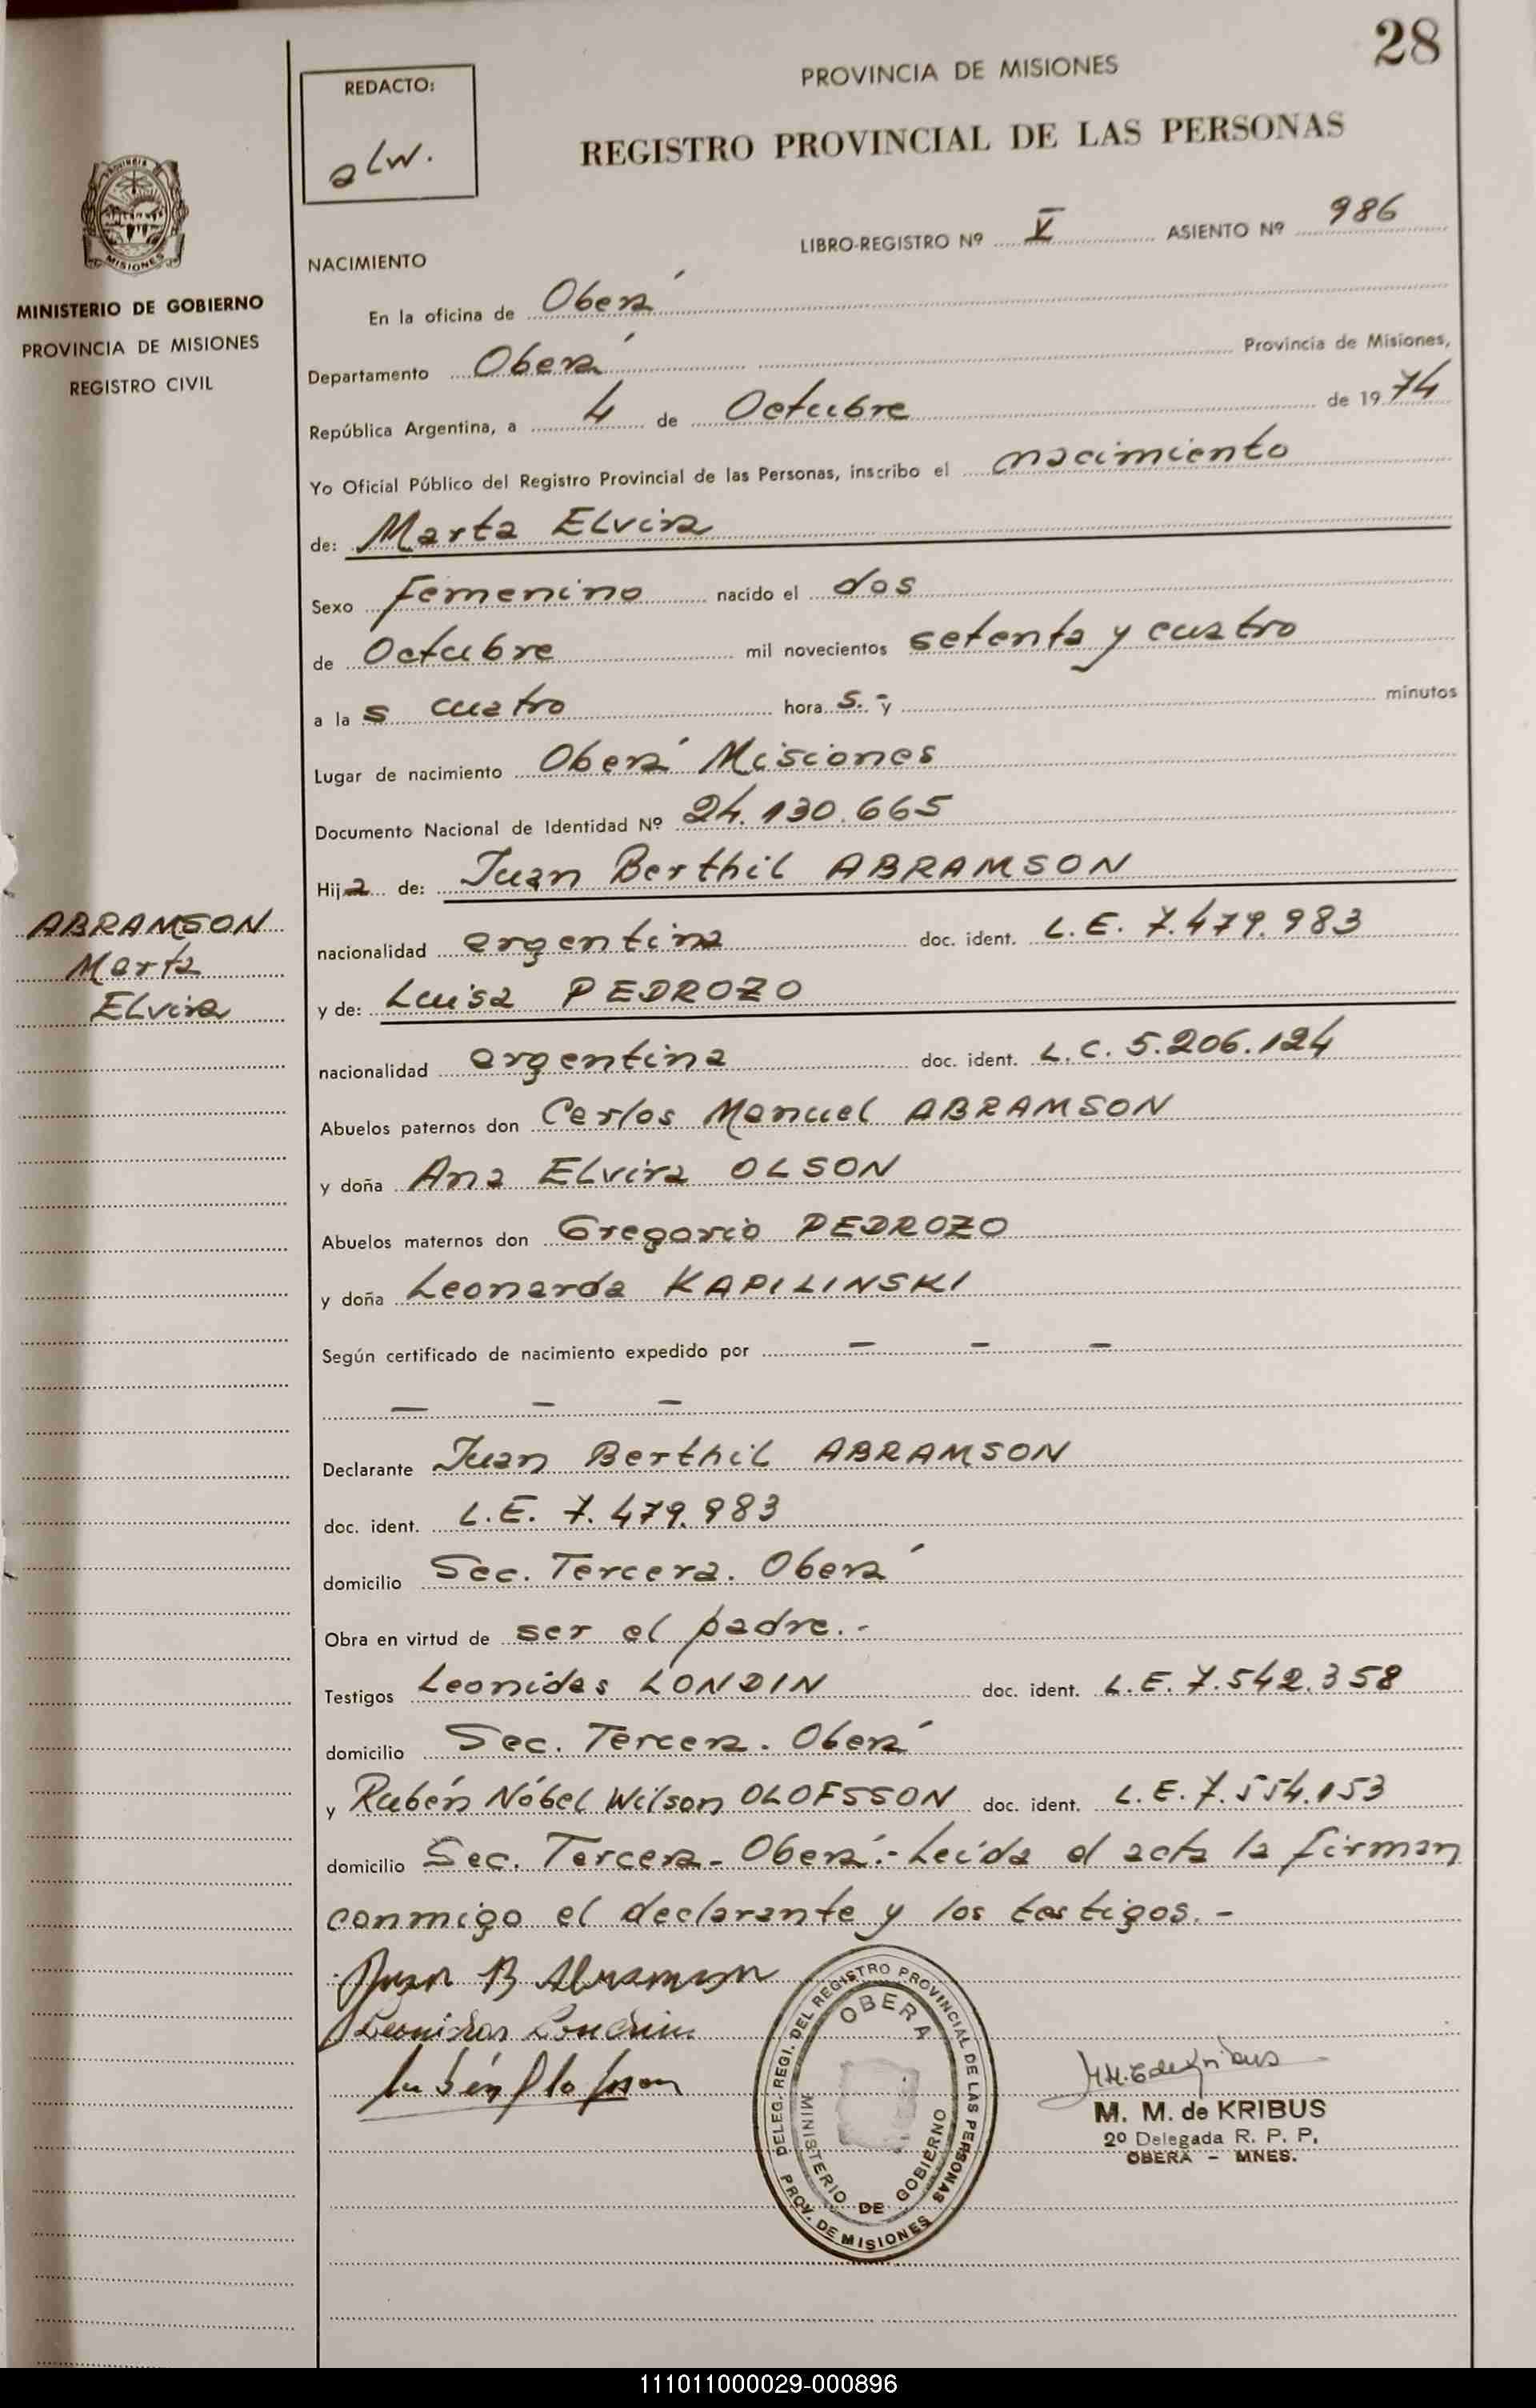 28
REDACTO:
alw.
PROVINCIA DE MISIONES
REGISTRO PROVINCIAL DE LAS PERSONAS
PROVINCIA
MISIONES
MINISTERIO DE GOBIERNO
PROVINCIA DE MISIONES
REGISTRO CIVIL
LIBRO-REGISTRO Nº V ASIENTO Nº 986
NACIMIENTO
En la oficina de Oberá
Departamento Oberá Provincia de Misiones,
República Argentina, a 4 de Octubre de 1974
Yo Oficial Público del Registro Provincial de las Personas, inscribo el nacimiento
de: Marta Elvira
Sexo femenino nacido el dos
de Octubre mil novecientos setenta y cuatro
a las cuatro horas.- y minutos
Lugar de nacimiento Oberá Misiones
Documento Nacional de Identidad Nº 24.130.665
Hija de: Juan Berthil ABRAMSON
ABRAMSON
Marta
Elvira
nacionalidad argentina doc. ident. L.E. 7.479.983
y de: Luisa PEDROZO
nacionalidad argentina doc. ident. L.C. 5.206.124
Abuelos paternos don Carlos Manuel ABRAMSON
y doña Ana Elvira OLSON
Abuelos maternos don Gregorio PEDROZO
y doña Leonarda KAPILINSKI
Según certificado de nacimiento expedido por - - -
- - -
Declarante Juan Berthil ABRAMSON
doc. ident. L.E. 7.479.983
domicilio Sec. Tercera. Oberá
Obra en virtud de ser el padre.-
Testigos Leonidas LONDIN doc. ident. L.E. 7.542.358
domicilio Sec. Tercera. Oberá
y Rubén Nóbel Wilson OLOFSSON doc. ident. L.E. 7.554.153
domicilio Sec. Tercera. Oberá.- Leída el acta la firman
conmigo el declarante y los testigos.-
Juan B Abramson
Leonidas Londin
Rubén Olofsson
DELEG. REGI. DEL REGISTRO PROVINCIAL DE LAS PERSONAS
OBERA
MINISTERIO DE GOBIERNO
PROV. DE MISIONES
M. M. de Kribus
M. M. de KRIBUS
2º Delegada R. P. P.
OBERA - MNES.
111011000029-000896